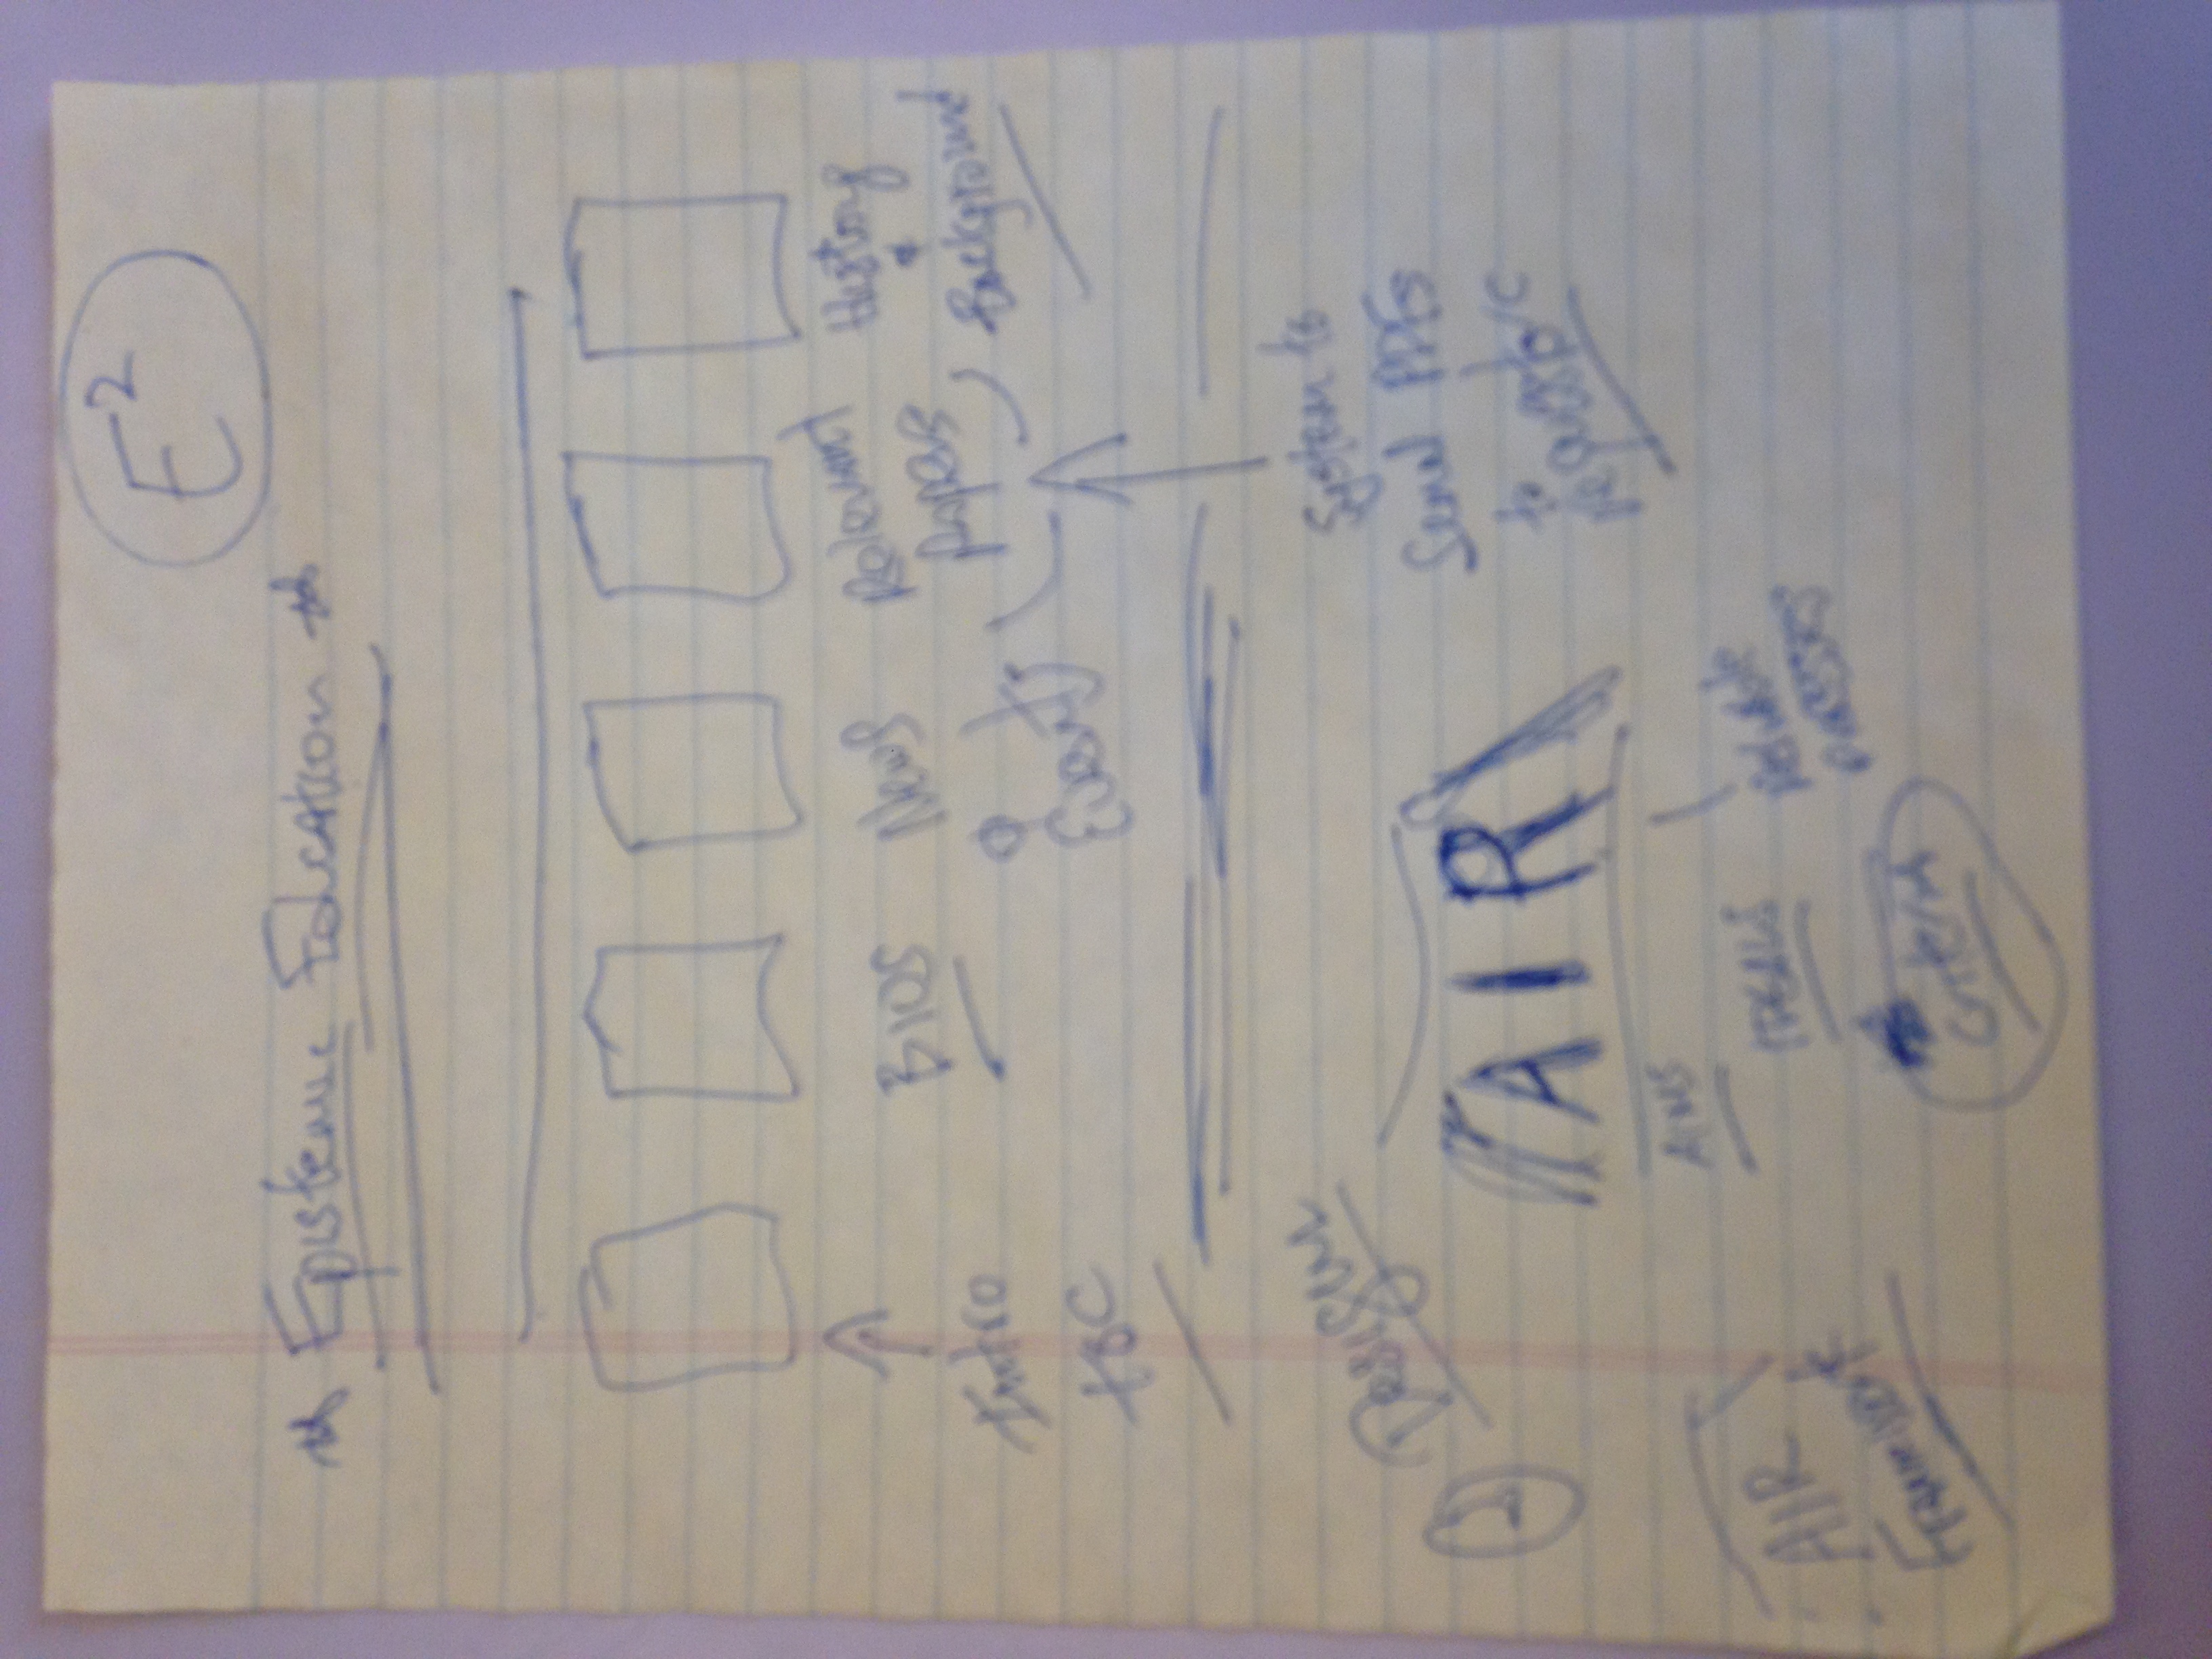 E²
Epistemic Education
Intro
TOC
BIOS
News
&
Events
Relevant
Papers
History
&
Background
System to
Send PDFs
to
Design
AIR
AIMS
IDEALS
Reliable
processes
Criteria
AIR
Framework